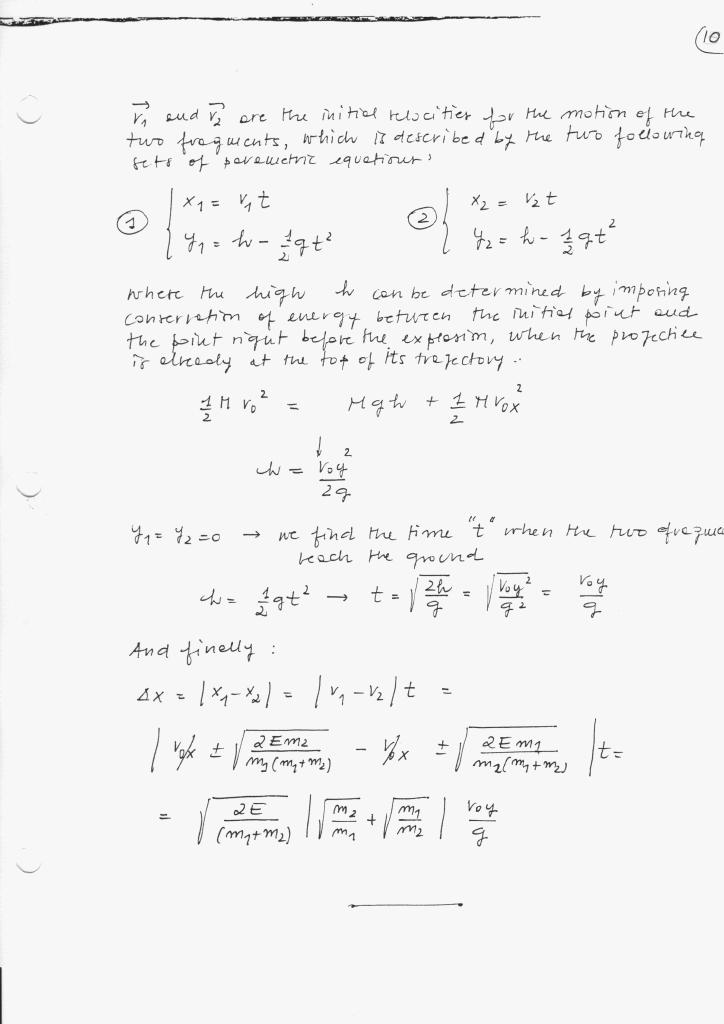 10
v₁ and v₂ are the initial velocities for the motion of the
two fragments, which is described by the two following
sets of parametric equations:
① { x₁ = v₁t
y₁ = h - ½gt²
② { x₂ = v₂t
y₂ = h - ½gt²
where the high h can be determined by imposing
conservation of energy between the initial point and
the point right before the explosion, when the projectile
is already at the top of its trajectory..
½ M v₀² = Mgh + ½ M v₀ₓ²
↓
h = v₀y²/2g
y₁ = y₂ = 0 → we find the time "t" when the two fragme
reach the ground
h = ½gt² → t = √(2h/g) = √(v₀y²/g²) = v₀y/g
And finally :
Δx = |x₁-x₂| = |v₁-v₂|t =
|v₀ₓ ± √(2Em₂/m₁(m₁+m₂)) - v₀ₓ ± √(2Em₁/m₂(m₁+m₂))|t =
= √(2E/(m₁+m₂)) |√(m₂/m₁) + √(m₁/m₂)| v₀y/g